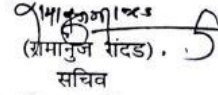 (रामानुज रांदड) .
सचिव